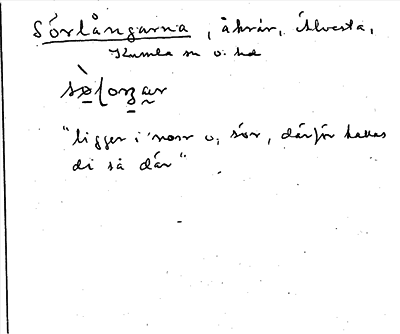 Sörlångarna, åkrar, Älvesta,
Kumla sn o. hd
"ligger i norr o. sör, därför kallas
di så där"